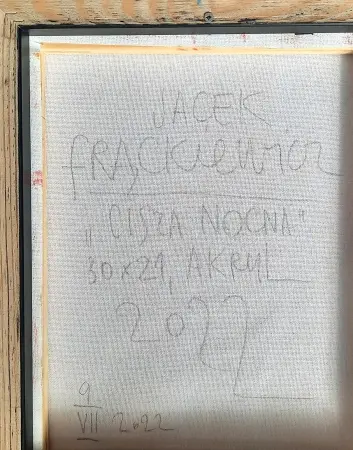 JACEK
FRĄCKIEWICZ
"CISZA NOCNA"
30x21, AKRYL
2022
9
VII 2022